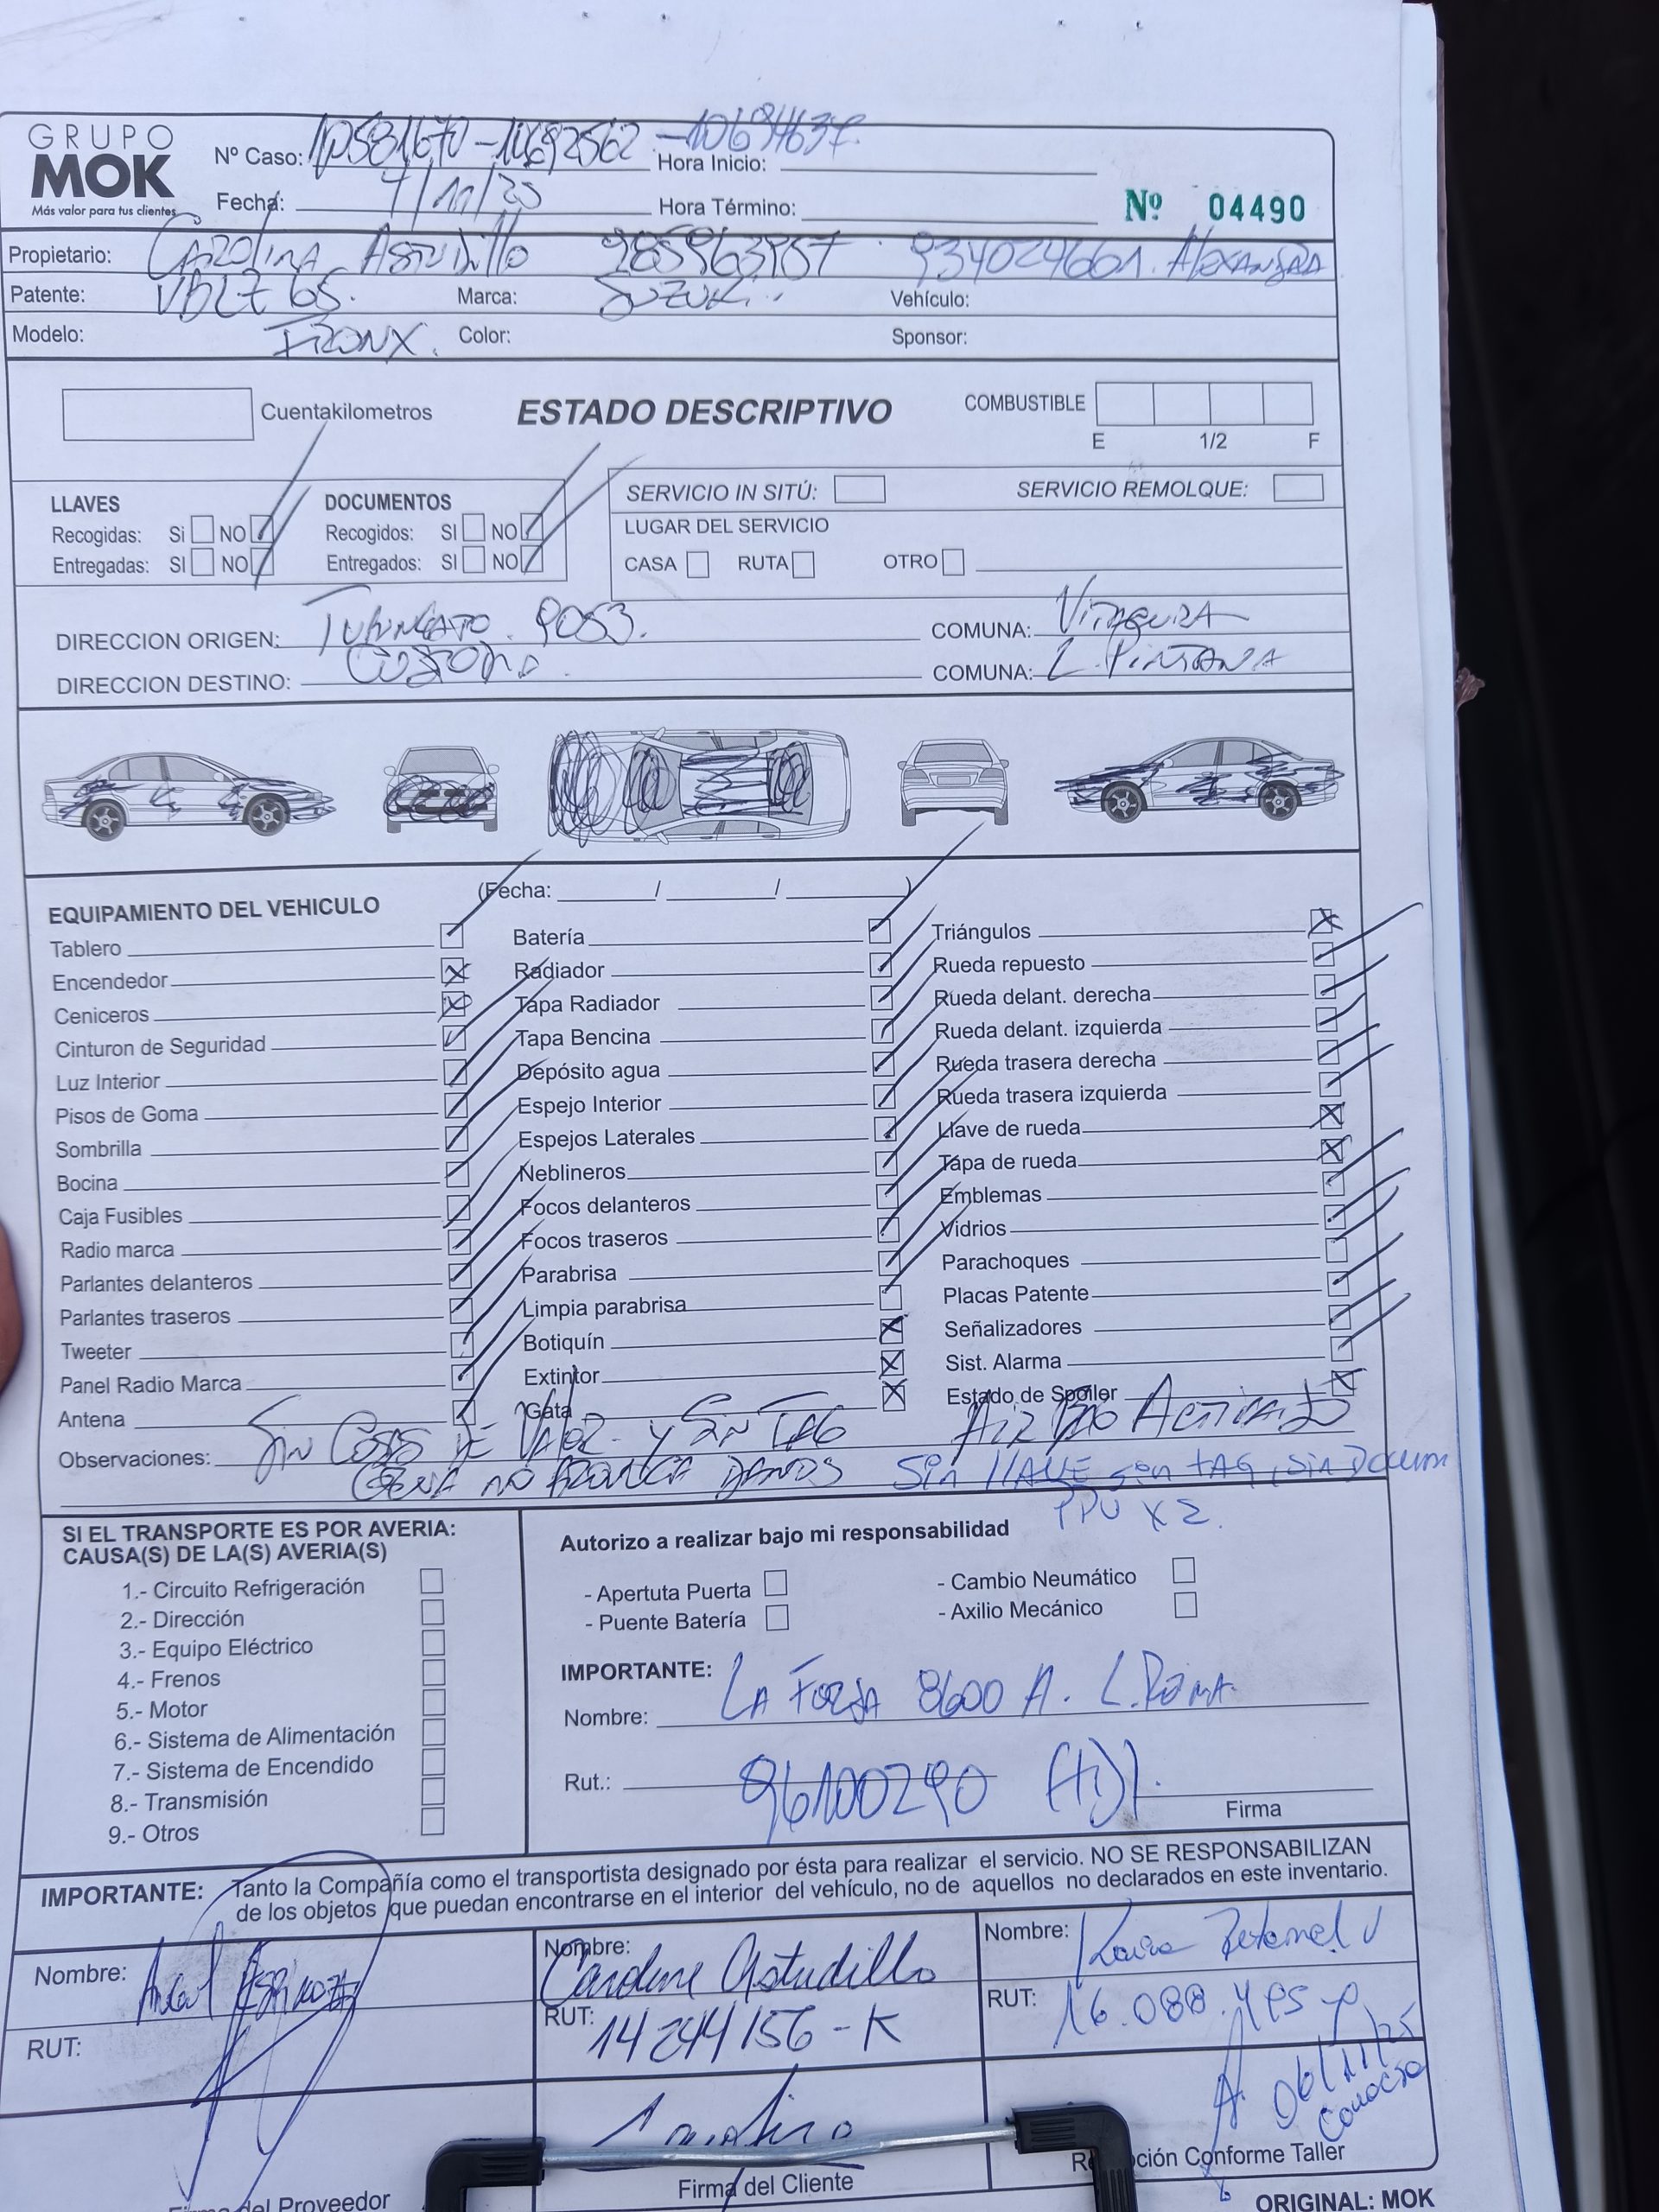 GRUPO
MOK
Más valor para tus clientes
Nº Caso: 10581670-10692562 -10694637.
Hora Inicio:
Fecha: 7/11/25
Hora Término:
Nº 04490
Propietario: CAROLINA ASTUDILLO 985963957 934024661. ALEXANDRA
Patente: VBLZ 65. Marca: SUZUKI. Vehículo:
Modelo: FRONX. Color: Sponsor:
Cuentakilometros
ESTADO DESCRIPTIVO
COMBUSTIBLE
E 1/2 F
LLAVES
Recogidas: Si NO
Entregadas: SI NO
DOCUMENTOS
Recogidos: SI NO
Entregados: SI NO
SERVICIO IN SITÚ: SERVICIO REMOLQUE:
LUGAR DEL SERVICIO
CASA RUTA OTRO
DIRECCION ORIGEN: TUPUNGATO. 9053. COMUNA: VITACURA
DIRECCION DESTINO: CUSTODIA. COMUNA: L. PINTANA
EQUIPAMIENTO DEL VEHICULO
(Fecha: / / )
Tablero
Encendedor
Ceniceros
Cinturon de Seguridad
Luz Interior
Pisos de Goma
Sombrilla
Bocina
Caja Fusibles
Radio marca
Parlantes delanteros
Parlantes traseros
Tweeter
Panel Radio Marca
Antena
Batería
Radiador
Tapa Radiador
Tapa Bencina
Depósito agua
Espejo Interior
Espejos Laterales
Neblineros
Focos delanteros
Focos traseros
Parabrisa
Limpia parabrisa
Botiquín
Extintor
Gata
Triángulos
Rueda repuesto
Rueda delant. derecha
Rueda delant. izquierda
Rueda trasera derecha
Rueda trasera izquierda
Llave de rueda
Tapa de rueda
Emblemas
Vidrios
Parachoques
Placas Patente
Señalizadores
Sist. Alarma
Estado de Spoiler
Observaciones: SIN COSAS DE VALOR - Y SIN TAG AIR BAG ACTIVADO
GRUA NO PROVOCA DAÑOS SIN LLAVE sin tAG, SIN Docum
PPU X 2.
SI EL TRANSPORTE ES POR AVERIA:
CAUSA(S) DE LA(S) AVERIA(S)
1.- Circuito Refrigeración
2.- Dirección
3.- Equipo Eléctrico
4.- Frenos
5.- Motor
6.- Sistema de Alimentación
7.- Sistema de Encendido
8.- Transmisión
9.- Otros
Autorizo a realizar bajo mi responsabilidad
- Apertuta Puerta
- Cambio Neumático
- Puente Batería
- Axilio Mecánico
IMPORTANTE:
Nombre: LA FORJA 8600 A. L. REINA.
Rut.: 96100290
Firma
IMPORTANTE: Tanto la Compañía como el transportista designado por ésta para realizar el servicio. NO SE RESPONSABILIZAN
de los objetos que puedan encontrarse en el interior del vehículo, no de aquellos no declarados en este inventario.
Nombre: Angel Espinoza
RUT:
Nombre: Caroline Astudillo
RUT: 14244156-K
Firma del Cliente
Nombre: Retamal V
RUT: 16.088.
06/11/25
Recepción Conforme Taller
del Proveedor
ORIGINAL: MOK